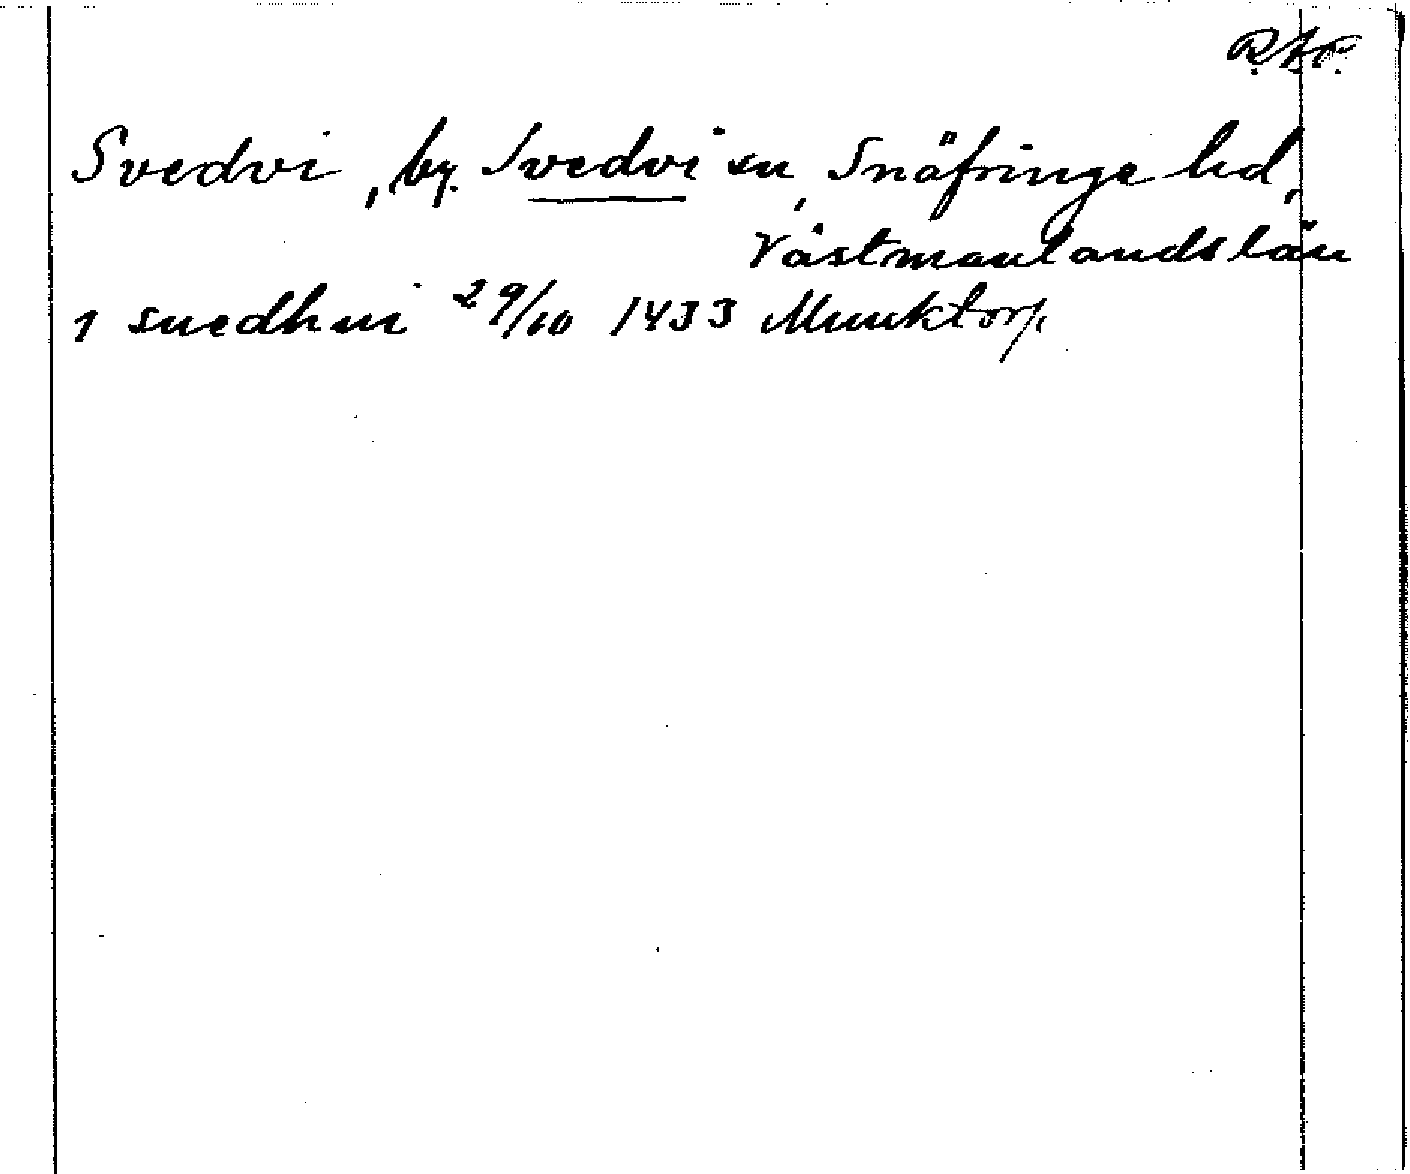 R.A.P.
Svedvi, by. Svedvi sn, Snäfringe hd,
Västmanlands län
1 suedhui 29/10 1433 Munktorp